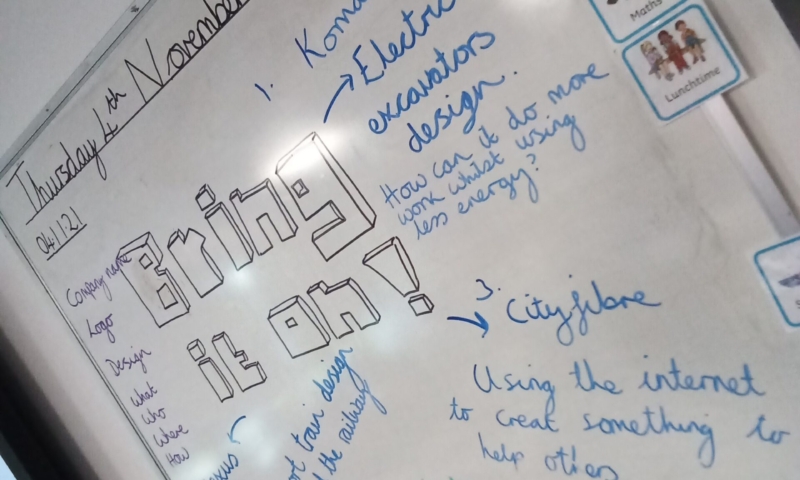 Thursday 4th November
04.11.21
1. Koma
Electric
excavators
design.
How can it do more
work whilst using
less energy?
Maths
Lunchtime
Bring
it on!
Company name
Logo
Design
What
Who
Where
How
train design
the railway
3. Cityfibre
Using the internet
to creat something to
help others